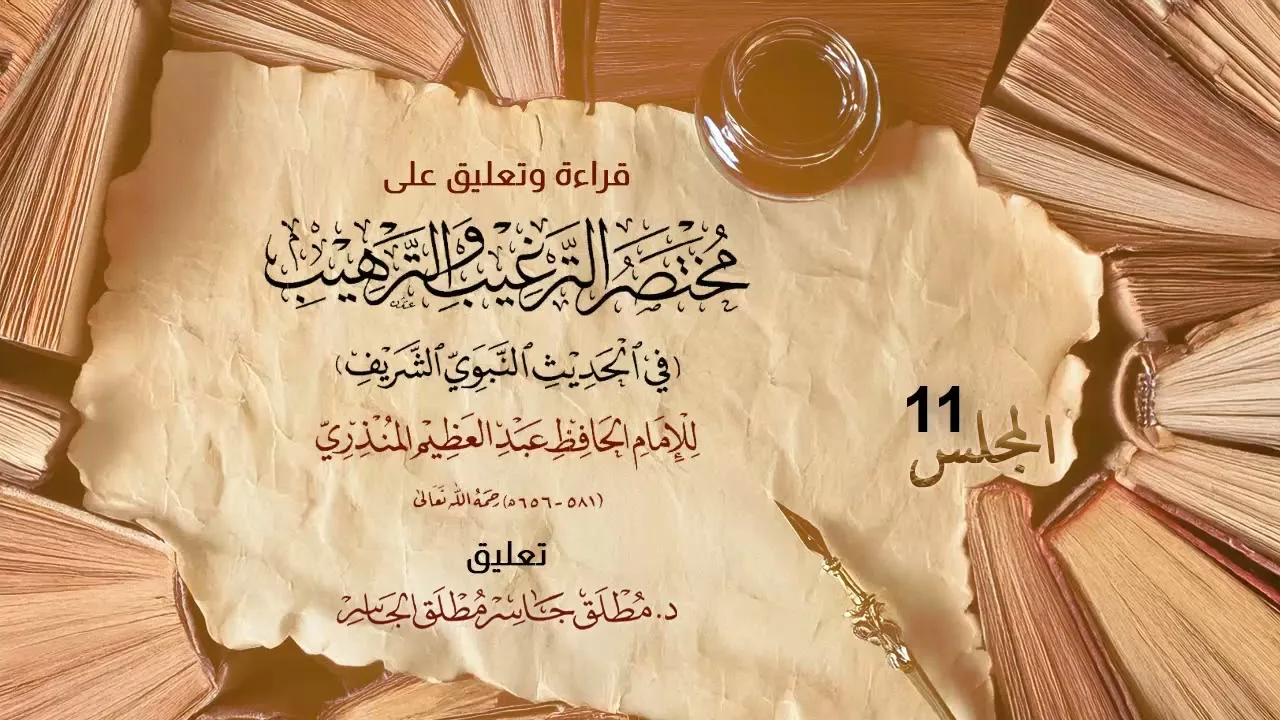 قراءة وتعليق على
مُخْتَصَرُ التَّرْغِيبِ وَالتَّرْهِيبِ
(فِي الْحَدِيثِ النَّبَوِيِّ الشَّرِيفِ)
لِلْإِمَامِ الْحَافِظِ عَبْدِ الْعَظِيمِ الْمُنْذِرِيِّ
(٥٨١ - ٦٥٦ هـ) رَحِمَهُ اللهُ تَعَالَى
تعليق
د. مُطْلَق جَاسِر مُطْلَق الجَاسِر
المجلس 11